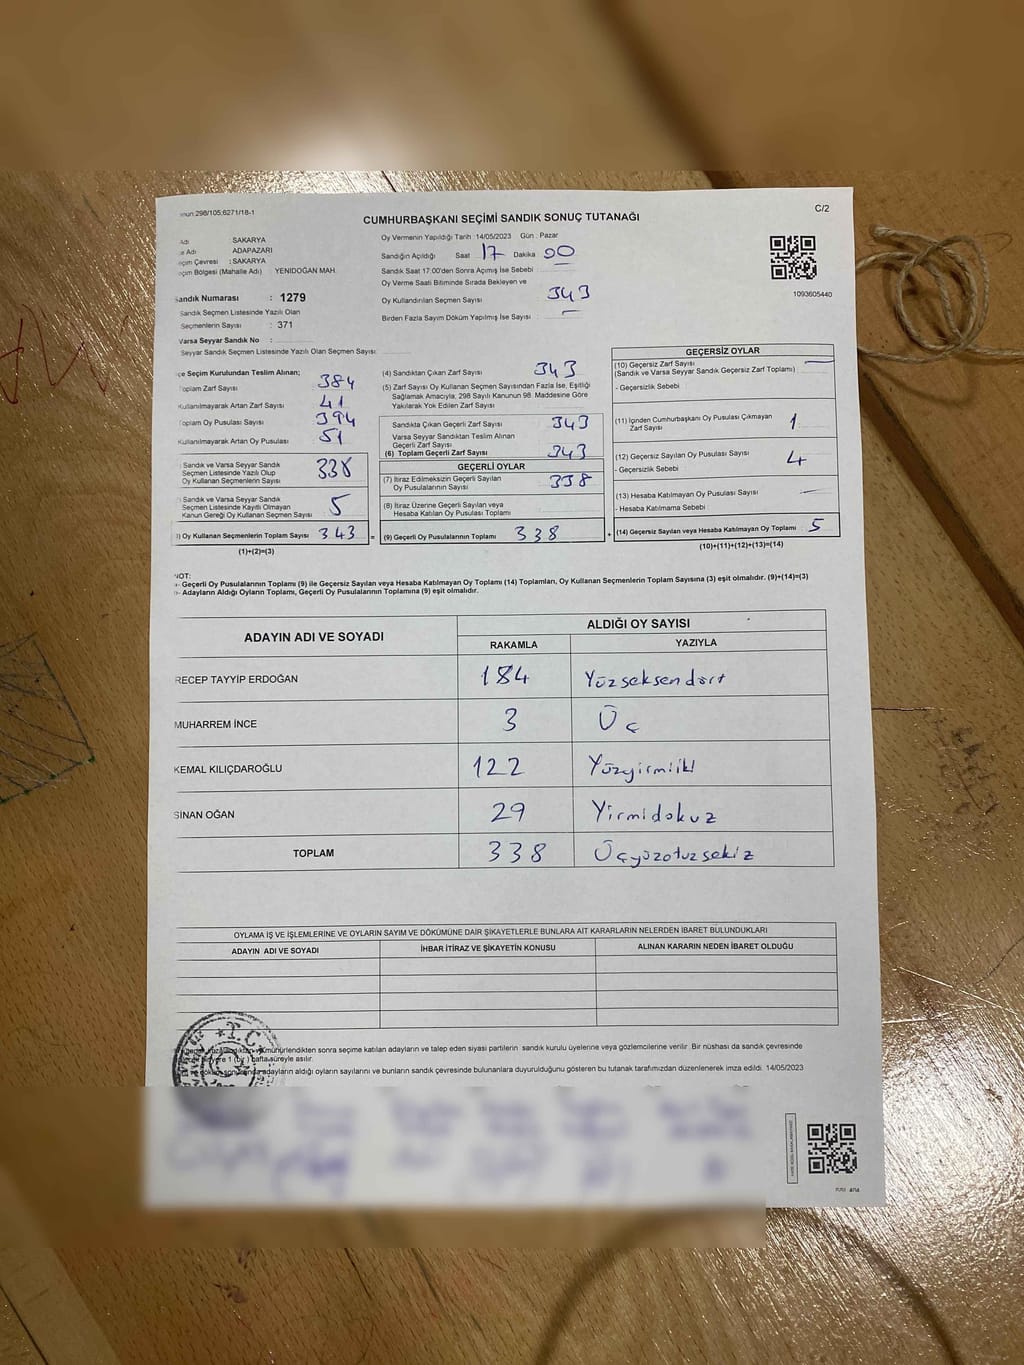 298/105;6271/18-1
CUMHURBAŞKANI SEÇİMİ SANDIK SONUÇ TUTANAĞI
C/2
Adı SAKARYA
Adı ADAPAZARI
Çevresi : SAKARYA
Bölgesi (Mahalle Adı) YENİDOĞAN MAH.
Sandık Numarası : 1279
Sandık Seçmen Listesinde Yazılı Olan
Seçmenlerin Sayısı : 371
Varsa Seyyar Sandık No :
Seyyar Sandık Seçmen Listesinde Yazılı Olan Seçmen Sayısı:
Oy Vermenin Yapıldığı Tarih :14/05/2023 Gün : Pazar
Sandığın Açıldığı Saat 17 Dakika 00
Sandık Saat 17:00'den Sonra Açımış İse Sebebi
Oy Verme Saati Bitiminde Sırada Bekleyen ve
Oy Kullandırılan Seçmen Sayısı 343
Birden Fazla Sayım Döküm Yapılmış İse Sayısı : —
1093605440
Seçim Kurulundan Teslim Alınan;
Toplam Zarf Sayısı 384
Kullanılmayarak Artan Zarf Sayısı 41
Toplam Oy Pusulası Sayısı 394
Kullanılmayarak Artan Oy Pusulası 51
Sandık ve Varsa Seyyar Sandık
Seçmen Listesinde Yazılı Olup
Oy Kullanan Seçmenlerin Sayısı 338
Sandık ve Varsa Seyyar Sandık
Seçmen Listesinde Kayıtlı Olmayan
Kanun Gereği Oy Kullanan Seçmen Sayısı 5
Oy Kullanan Seçmenlerin Toplam Sayısı 343 =
(1)+(2)=(3)
(4) Sandıktan Çıkan Zarf Sayısı 343
(5) Zarf Sayısı Oy Kullanan Seçmen Sayısından Fazla İse, Eşitliği
Sağlamak Amacıyla, 298 Sayılı Kanunun 98. Maddesine Göre
Yakılarak Yok Edilen Zarf Sayısı
Sandıkta Çıkan Geçerli Zarf Sayısı 343
Varsa Seyyar Sandıktan Teslim Alınan
Geçerli Zarf Sayısı
(6) Toplam Geçerli Zarf Sayısı 343
GEÇERLİ OYLAR
(7) İtiraz Edilmeksizin Geçerli Sayılan
Oy Pusulalarının Sayısı 338
(8) İtiraz Üzerine Geçerli Sayılan veya
Hesaba Katılan Oy Pusulası Toplamı
(9) Geçerli Oy Pusulalarının Toplamı 338 +
GEÇERSİZ OYLAR
(10) Geçersiz Zarf Sayısı —
(Sandık ve Varsa Seyyar Sandık Geçersiz Zarf Toplamı)
- Geçersizlik Sebebi
(11) İçinden Cumhurbaşkanı Oy Pusulası Çıkmayan
Zarf Sayısı 1
(12) Geçersiz Sayılan Oy Pusulası Sayısı 4
- Geçersizlik Sebebi
(13) Hesaba Katılmayan Oy Pusulası Sayısı —
- Hesaba Katılmama Sebebi
(14) Geçersiz Sayılan veya Hesaba Katılmayan Oy Toplamı 5
(10)+(11)+(12)+(13)=(14)
NOT:
- Geçerli Oy Pusulalarının Toplamı (9) ile Geçersiz Sayılan veya Hesaba Katılmayan Oy Toplamı (14) Toplamları, Oy Kullanan Seçmenlerin Toplam Sayısına (3) eşit olmalıdır. (9)+(14)=(3)
- Adayların Aldığı Oyların Toplamı, Geçerli Oy Pusulalarının Toplamına (9) eşit olmalıdır.
ADAYIN ADI VE SOYADI ALDIĞI OY SAYISI
RAKAMLA YAZIYLA
RECEP TAYYİP ERDOĞAN 184 Yüzseksendört
MUHARREM İNCE 3 Üç
KEMAL KILIÇDAROĞLU 122 Yüzyirmiiki
SİNAN OĞAN 29 Yirmidokuz
TOPLAM 338 Üçyüzotuzsekiz
OYLAMA İŞ VE İŞLEMLERİNE VE OYLARIN SAYIM VE DÖKÜMÜNE DAİR ŞİKAYETLERLE BUNLARA AİT KARARLARIN NELERDEN İBARET BULUNDUKLARI
ADAYIN ADI VE SOYADI İHBAR İTİRAZ VE ŞİKAYETİN KONUSU ALINAN KARARIN NEDEN İBARET OLDUĞU
T.C.
mühürlendikten sonra seçime katılan adayların ve talep eden siyasi partilerin sandık kurulu üyelerine veya gözlemcilerine verilir. Bir nüshası da sandık çevresinde
1 (bir) hafta süreyle asılır.
adayların aldığı oyların sayılarını ve bunların sandık çevresinde bulunanlara duyurulduğunu gösteren bu tutanak tarafımızdan düzenlenerek imza edildi. 14/05/2023